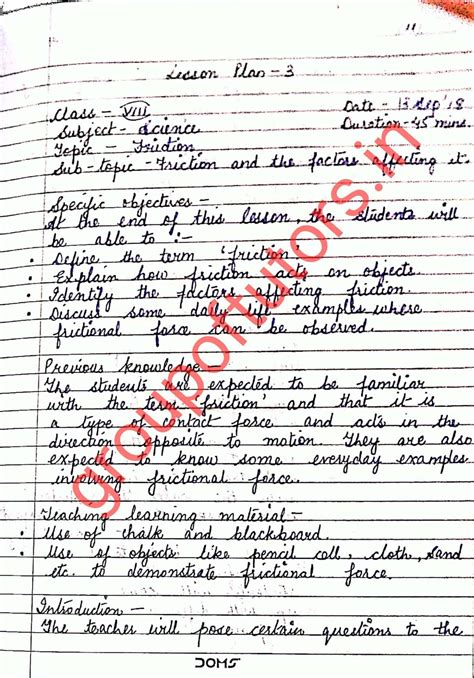 11
Lesson Plan - 3
Class - VIII
Date - 13 Sep '18
Subject - Science
Duration - 45 mins.
Topic - Friction
Sub-topic - Friction and the factors affecting it.
Specific objectives -
At the end of this lesson, the students will
be able to :-
• Define the term 'friction'.
• Explain how friction acts on objects.
• Identify the factors affecting friction.
• Discuss some daily life examples where
frictional force can be observed.
Previous knowledge -
The students are expected to be familiar
with the term 'friction' and that it is
a type of contact force and acts in the
direction opposite to motion. They are also
expected to know some everyday examples
involving frictional force.
Teaching learning material -
• Use of chalk and blackboard.
• Use of objects like pencil cell, cloth, sand
etc. to demonstrate frictional force.
Introduction -
The teacher will pose certain questions to the
DOMS
groupoftutors.in